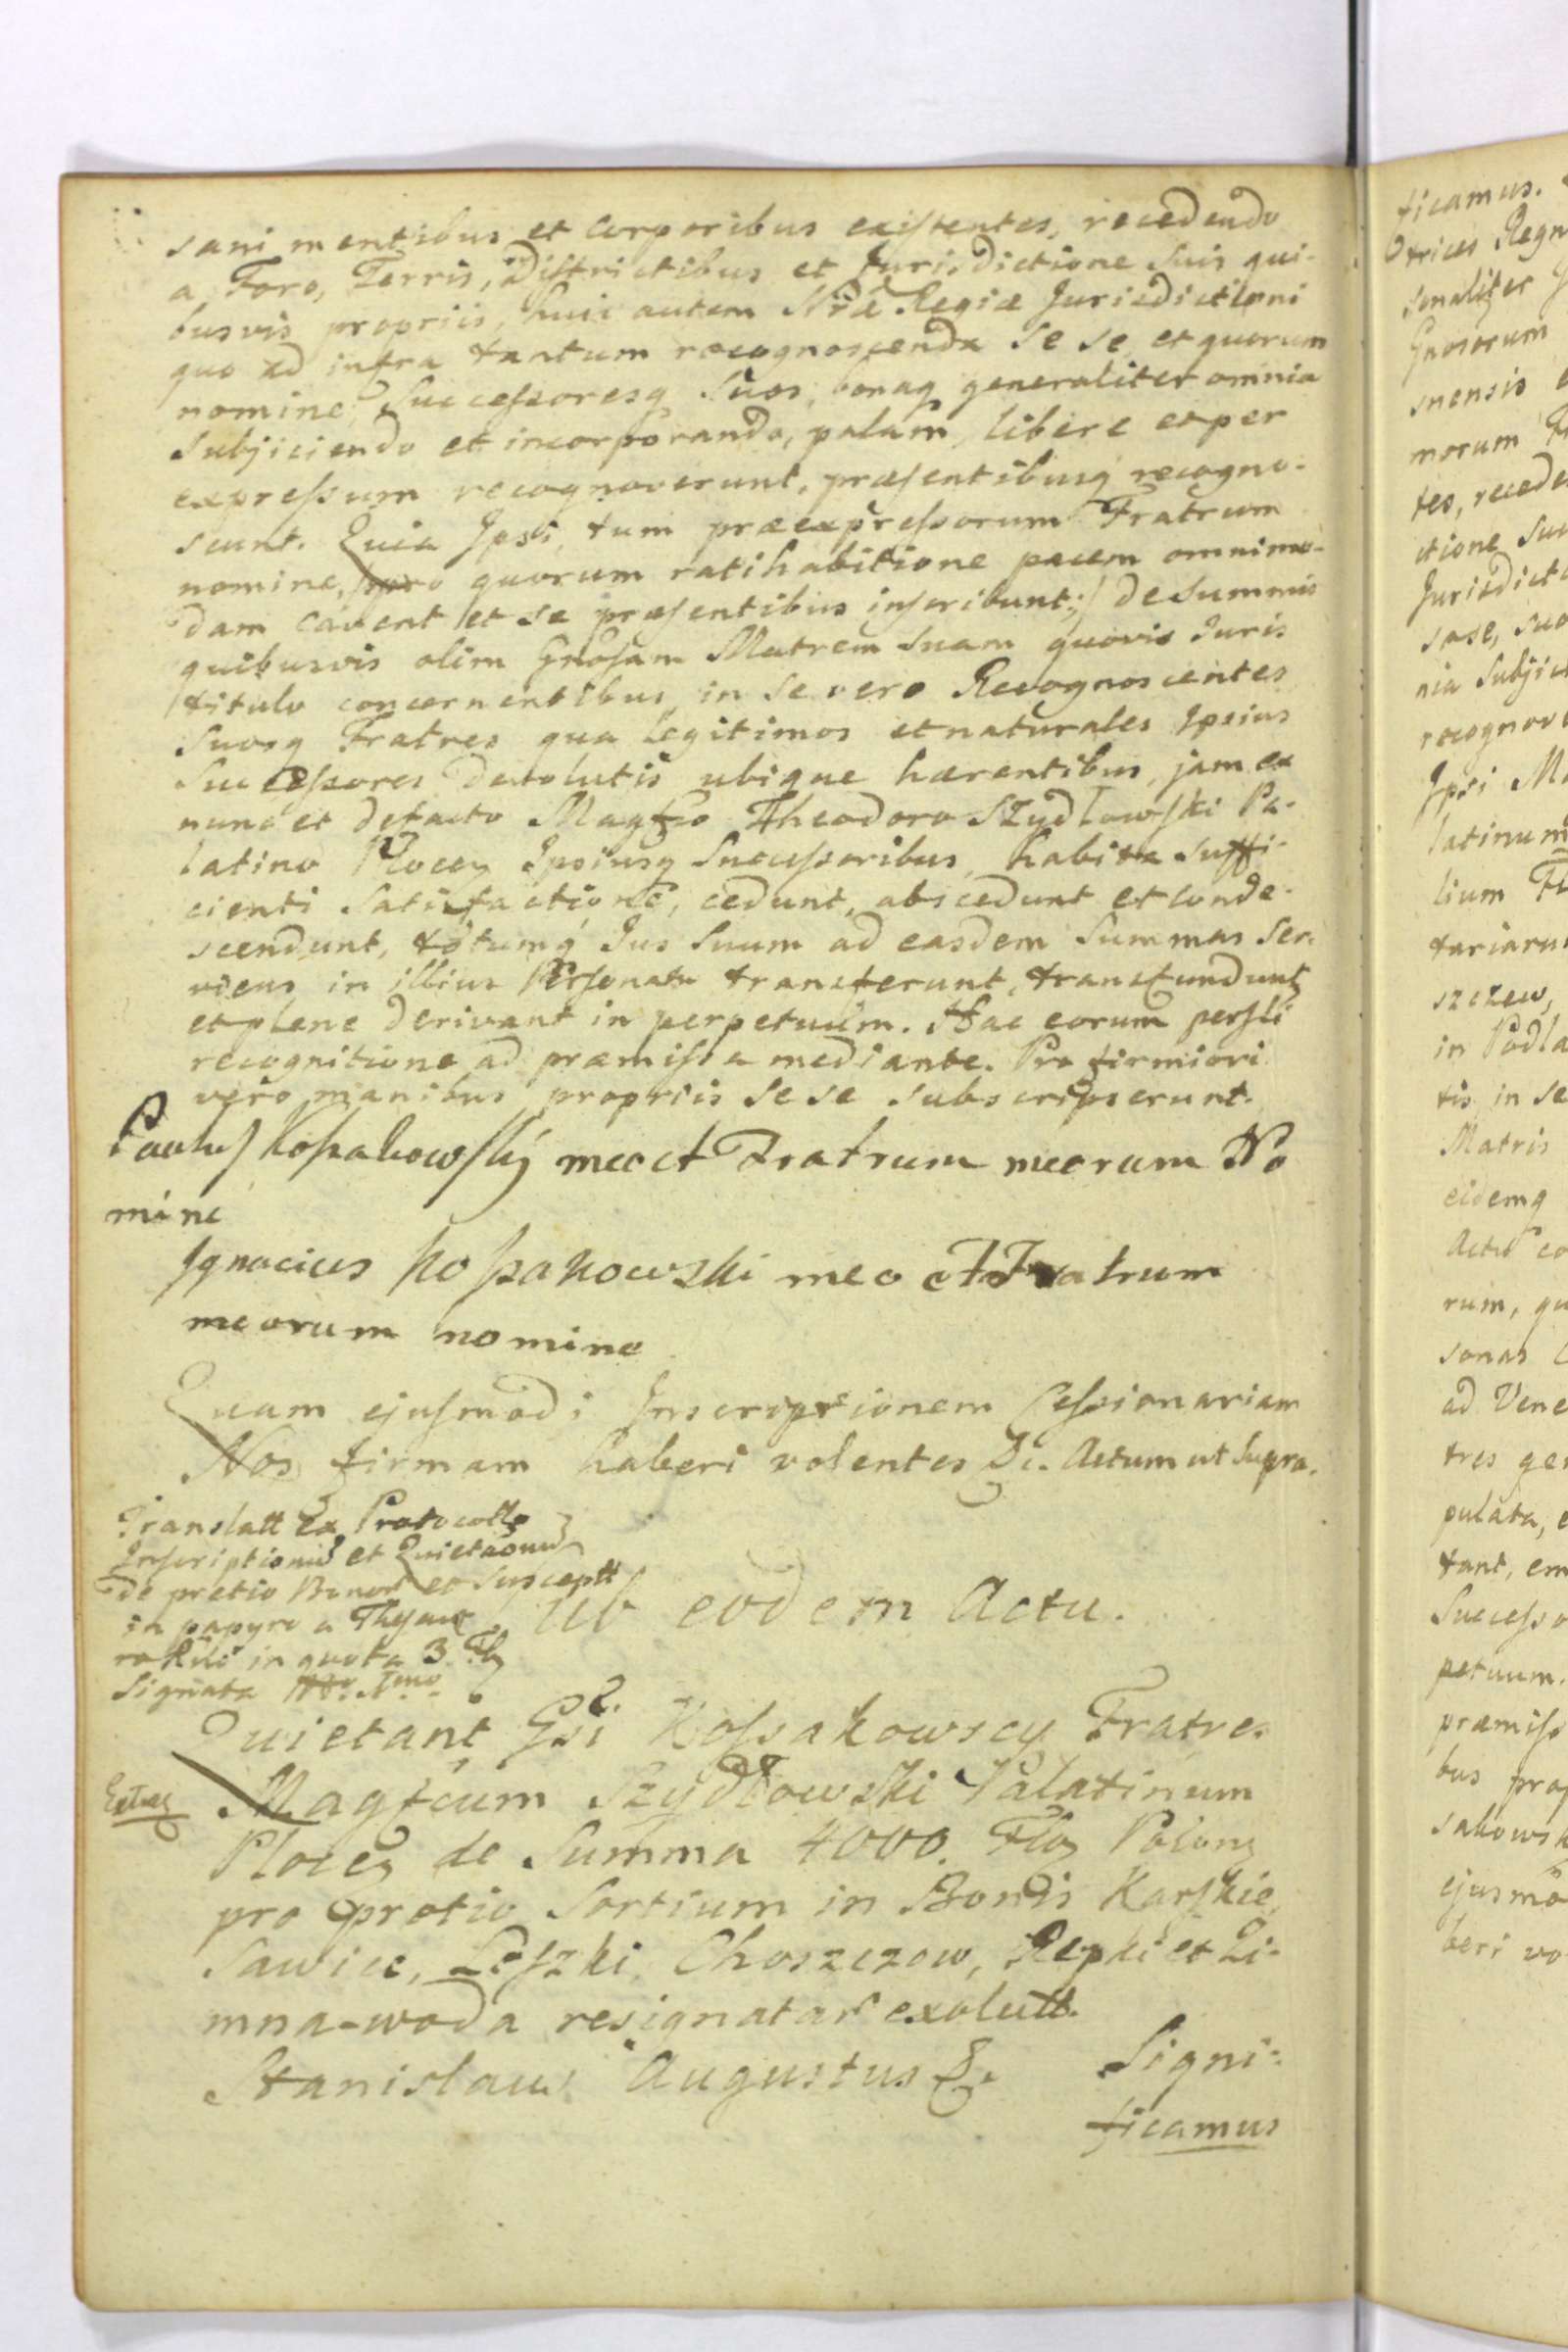 sani mentibus et Corporibus existentes, recedendo
a Foro, Terris, Districtibus et Jurisdictione Suis qui-
busvis propriis, huic autem Nrae Regiae Jurisdictioni
quo ad infra tantum recognoscenda Se se, et quorum
nomine, Successoresq Suos, bonaq generaliter omnia
Subjiciendo et incorporando, palam, libere et per
expressum recognoverunt, praesentibusq recogno-
scunt. Quia Ipsi, tum praeexpressorum Fratrum
nomine, /pro quorum ratihabitione pacem omnimo-
dam cavent et se praesentibus inscribunt:/ de Summis
quibusvis olim Gnosam Matrem Suam quovis Juris
titulo concernentibus, in Se vero Recognoscentes
Suosq Fratres qua legitimos et naturales Ipsius
Successores devolutis ubique haerentibus, jam ex
nunc et de facto Magfco Theodoro Szydlowski Pa-
latino Plocen Ipsiusq Successoribus, habita Suffi-
cienti Satisfactione, cedunt, abscedunt et conde-
scendunt, totumq Jus Suum ad easdem Summas Ser-
viens in illius Personam transferunt, transfundunt
et plene derivant in perpetuum. Hac eorum persli
recognitione ad praemissa mediante. Pro firmiori
vero manibus propriis Se se Subscripserunt.
Paulus Kossakowsky meo et Fratrum meorum No
mine
Ignacius Kossakowski meo et Fratrum
meorum nomine
Quam ejusmodi Inscriptionem Cessionariam
Nos firmam haberi volentes &c. Actum ut Supra.
Translatt Ex Protocollo
Inscriptionũ et Quietaõnũ
de pretio Bonor et Susceptt
in papyro a Thesauro
in quota 3. Fl
Signata
Ub eodem Actu.
Quietant Gsi Kossakowscy Fratres
Extrad
Magfcum Szydłowski Palatinum
Plocen de Summa 4000. Flor Polon
pro pretio Sortium in Bonis Karskie,
Sawice, Leszki, Choszczow, Repki et Zi-
mna-woda resignatar exolutt.
Stanislaus Augustus &. Signi-
ficamus
ficamus.
trices Regn
sonaliter
Gnosorum
snensis
morum
tes, recede
ctione Sui
Jurisdict
sese, suo
nia Subjic
recognov
Ipsi Ma
latinum
lium
tariaru
szczew,
in Podla
tis in se
Matris
eidemq
Actu co
rum, qu
sonas
ad Vene
tres ger
pulata, e
tant, em
Successo
petuum.
praemiss
bus prop
sakowsk
ejusmo
beri vo